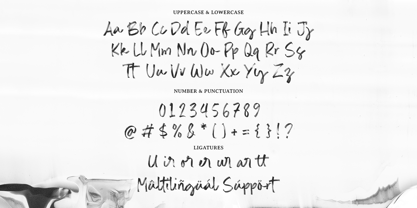 UPPERCASE & LOWERCASE
Aa Bb Cc Dd Ee Ff Gg Hh Ii Jj
Kk Ll Mm Nn Oo Pp Qq Rr Ss
Tt Uu Vv Ww Xx Yy Zz
NUMBER & PUNCTUATION
0123456789
@ # $ % & * ( ) + = { } ! ?
LIGATURES
ir or er ur ar tt
Mältilingüál Súppórt